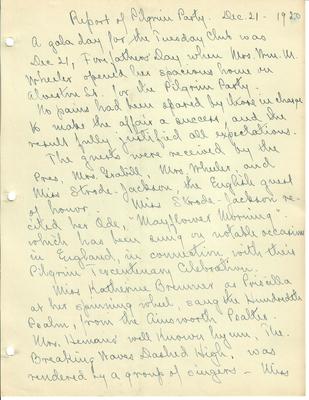 Report of Pilgrim Party. Dec. 21 - 1920
A gala day for the Tuesday Club was
Dec 21, Forefathers' Day when Mrs. Wm. M.
Wheeler opened her spacious home on
Alveston St. for the Pilgrim Party.
No pains had been spared by those in charge
to make the affair a success, and the
result fully justified all expectations.
The guests were received by the
Pres. Mrs. Grabill, Mrs Wheeler, and
Miss Strode-Jackson, the English guest
of honor. Miss Strode-Jackson re-
cited her Ode, "Mayflower Morning"
which has been sung on notable occasions
in England, in connection with their
Pilgrim Tercentenary Celebration.
Miss Katherine Bremner as Priscilla
at her spinning wheel, sang the Hundredth
Psalm, from the Ainsworth Psalter.
Mrs. Hemans' well known hymn, The
Breaking Waves Dashed High, was
rendered by a group of singers - Miss